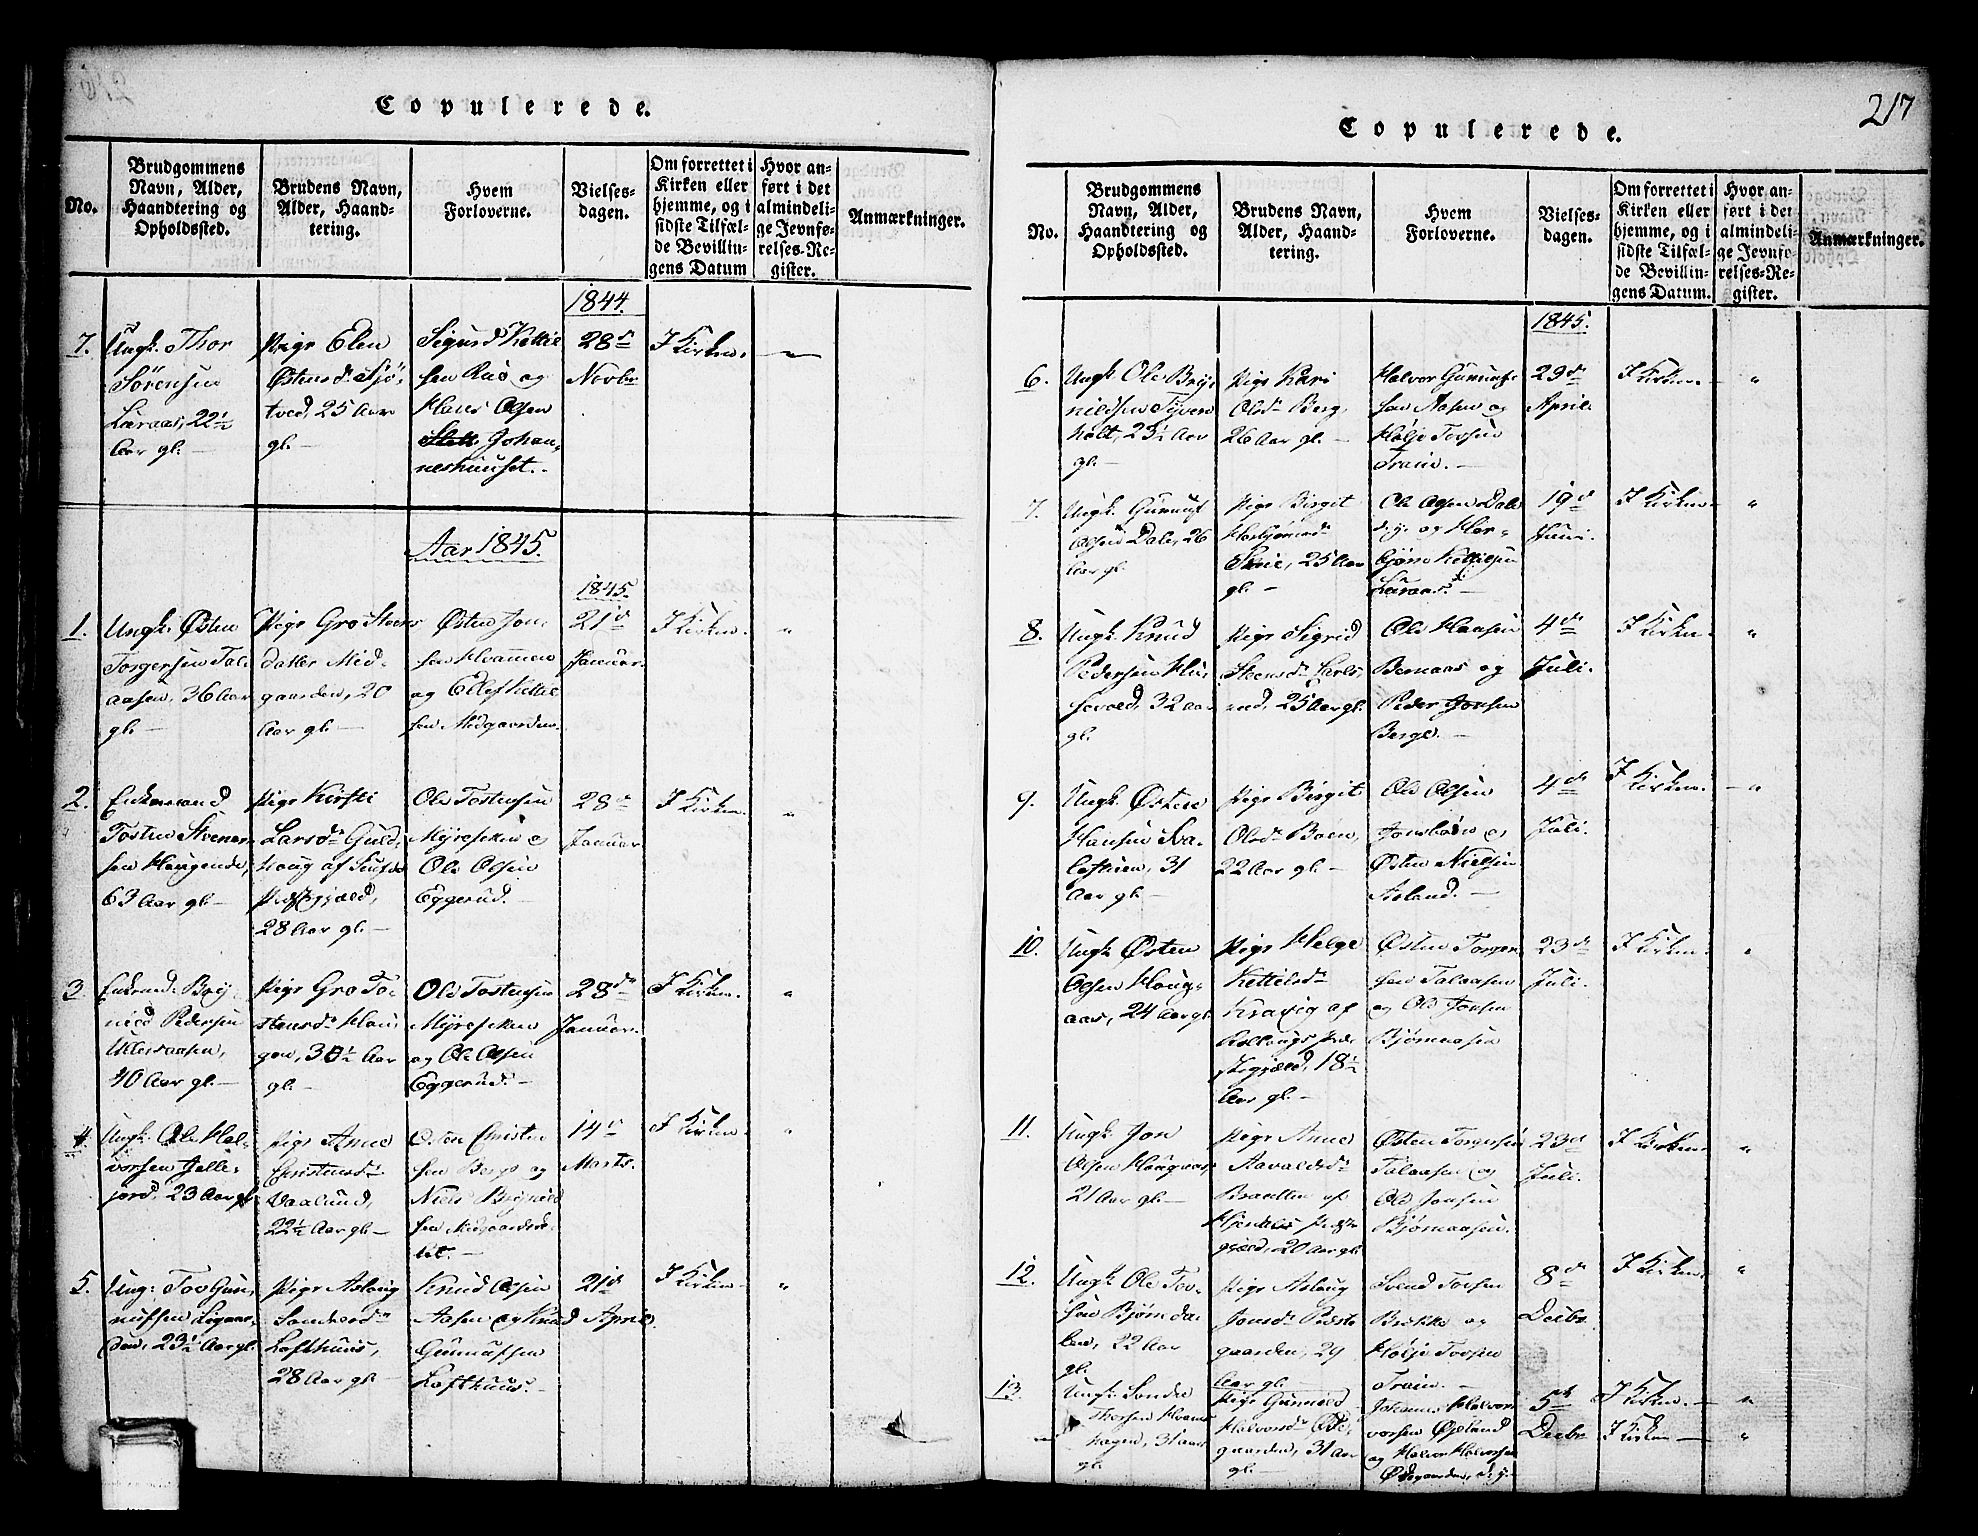 Copulerede.
No.
Brudgommens Navn, Alder, Haandtering og Opholdssted.
Brudens Navn, Alder, Haandtering.
Hvem Forloverne.
Vielsesdagen.
Om forrettet i Kirken eller hjemme, og i sidste Tilfælde Bevillingens Datum
Hvor anført i det almindelige Jevnførelses-Register.
Anmærkninger.
1844.
7.
Ungk. Thor
Sörensen
Laraas, 22½
Aar gl. —
Pige Elen
Østensd.
tved, 25 Aar
gl. —
Sigurd Kettil
sen Rui og
Hans Olsen
Johan
neshuuset. -
28de
Novbr
I Kirken.
Aar 1845.
1845.
1.
Ungk. Østen
Torgersen Tal
aasen, 36 Aar
gl. —
Pige Gro Steens
datter Mid-
gaarden, 20
Aar gl. —
Østen Jon
sen Hvammen
og Ellef Kettil
sen Midgaarden.
21de
Januar.
I Kirken.
"
2.
Enkemand
Tosten Steener
sen Haugende,
63 Aar gl. —
Pige Kirsti
Larsd. Guld
houg af
Præstegjæld,
28 Aar gl. —
Ole Tostensen
Myresken o
Ole Olsen
Eggerud. —
28de
Januar
I Kirken.
"
3.
Enkemd. Bry-
nild Pedersen
Ullersaasen,
40 Aar gl. —
Pige Gro To-
stensd. Hau
gen, 30½ Aar
gl. —
Ole Tostensen
Myresken
og Ole Olsen
Eggerud. —
28de
Januar.
I Kirken.
"
4.
Ungk. Ole Hal-
vorsen Selle-
jord, 23 Aar gl.
Pige Anne
Christensd.
Vaalund,
22½ Aar gl. —
Østen Christen
sen Berge og
Niels Brynild
sen Midgaards-
lil. —
14de
Marts.
I Kirken.
"
5.
Ungk. Tov Gun
nufsen
23½ Aar gl.
Pige Aslaug
Sondresd.
Lofthuus,
28 Aar gl. —
Knud Olsen
Aasen og Knud
Gunnufsen
Lofthuus. —
21de
April.
I Kirken.
"
217
Copulerede.
No.
Brudgommens Navn, Alder, Haandtering og Opholdssted.
Brudens Navn, Alder, Haandtering.
Hvem Forloverne.
Vielsesdagen.
Om forrettet i Kirken eller hjemme, og i sidste Tilfælde Bevillingens Datum.
Hvor anført i det almindelige Jevnførelses-Register.
Anmærkninger.
1845.
6.
Ungk. Ole Bry-
nildsen Tyven
holt, 23½ Aar
gl. —
Pige Kari
Olsd. Berg,
26 Aar gl. —
Halvor Gunnuf
sen Aasen og
Hølje Tovsen
Traim. —
29de
April.
I Kirken. —
"
7.
Ungk. Gunnuf
Olsen Dale, 26
Aar gl.
Pige Birgit
Herbjørnsd.
25 Aar
gl. —
Ole Olsen Dale
d. y. og Her-
bjørn Kettilsen
Laraas.
19de
Juni.
I Kirken. —
"
8.
Ungk. Knud
Pedersen
32 Aar
gl.
Pige Sigrid
Steensd.
25 Aar gl.
Ole Hansen
Bernaas og
Peder Jonsen
Berge. —
4de
Juli.
I Kirken.
"
9.
Ungk. Østen
Hansen
31
Aar gl. —
Pige Birgit
Olsd. Boen,
22 Aar gl. —
Ole Olsen
Jonsboen og
Østen Nielsen
Aaland. —
4de
Juli.
I Kirken. —
"
10.
Ungk. Østen
Olsen Haug-
aas, 24 Aar gl.
Pige Helge
Kettilsd.
Kravig af
Rollaugs Præ
stegjæld, 18½
Aar gl. —
Østen Torger
sen Talaasen
og Ole Jonsen
Bjørnaasen
23de
Juli.
I Kirken.
"
11.
Ungk. Jon
Olsen Haugaas
21 Aar gl. —
Pige Anne
Aavaldsd.
Braatten af
Hjerdals Præste
gjæld, 20 Aar gl.
Østen Torgersen
Talaasen og
Ole Jonsen
Bjørnaasen.
23de
Juli.
I Kirken.
"
12.
Ungk. Ole Tov-
sen Bjørnda-
len, 22 Aar
gl.
Pige Aslaug
Jonsd. Præste
gaarden, 29
Aar gl. —
Svend Tovsen
Brekke og
Hølje Tovsen
Traim. —
8de
Decbr.
I Kirken.
"
13.
Ungk. Sondre
Thorsen Hvams
hagen, 31 Aar
gl.
Pige Gunnild
Halvorsd. Øde-
gaarden, 31 Aar
gl. —
Johannes Halvor
vorsen Øyeland
og Halvor Halvorsen
Ødegaarden, d. y.
5te
Decbr
I Kirken. —
I Kirken —
"
"